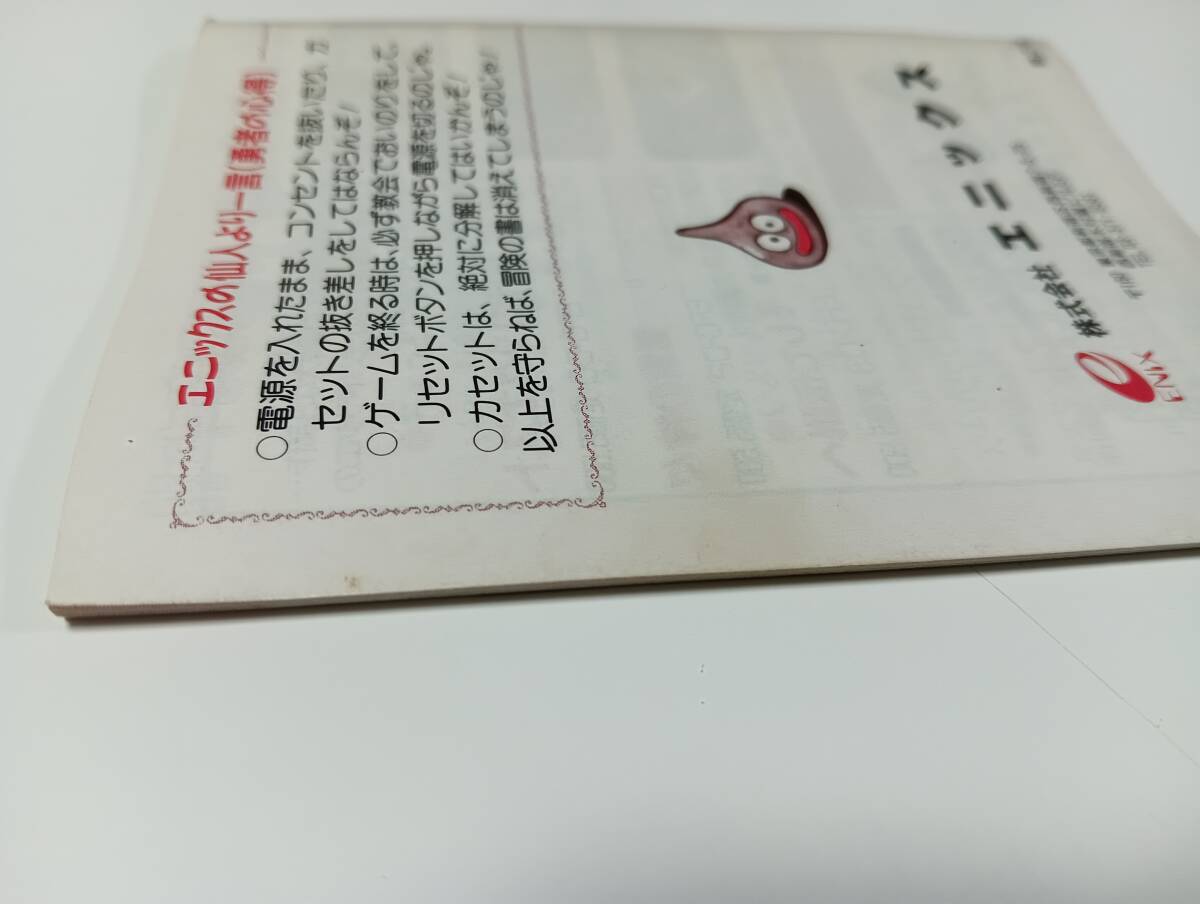 エニックスの仙人より一言(勇者の心得)
○電源を入れたまま、コンセントを抜いたり、カ
セットの抜き差しをしてはならんぞ!
○ゲームを終る時は、必ず教会でおいのりをして、
リセットボタンを押しながら電源を切るのじゃ。
○カセットは、絶対に分解してはいかんぞ!
以上を守らねば、冒険の書は消えてしまうのじゃ!
株式会社 エニックス
ENIX